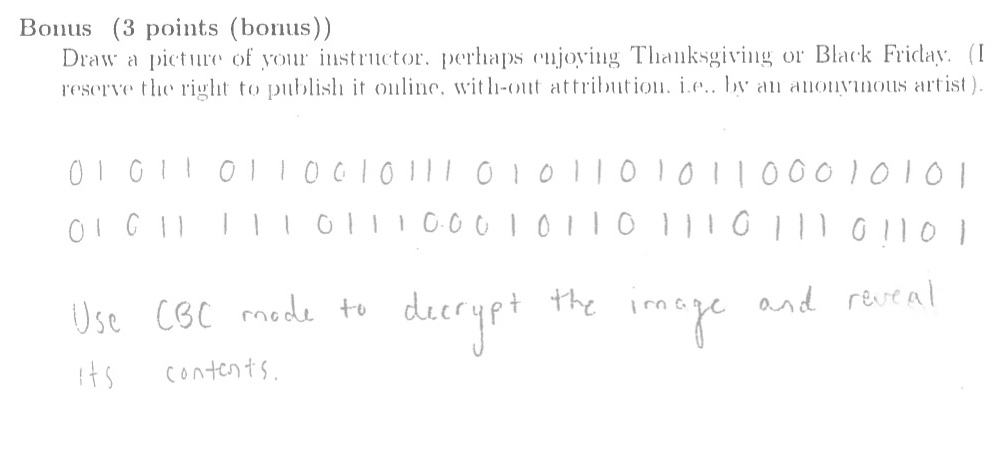 Bonus (3 points (bonus))
Draw a picture of your instructor, perhaps enjoying Thanksgiving or Black Friday. (I
reserve the right to publish it online, with-out attribution, i.e., by an anonymous artist).
0 1 0 1 1 0 1 1 0 0 1 0 1 1 1 0 1 0 1 1 0 1 0 1 1 0 0 0 1 0 1 0 1
0 1 0 1 1 1 1 1 0 1 1 1 0 0 0 1 0 1 1 0 1 1 1 0 1 1 1 0 1 1 0 1
Use CBC mode to decrypt the image and reveal
its contents.